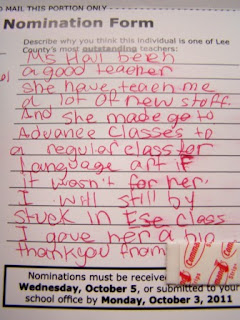 MAIL THIS PORTION ONLY
Nomination Form
Describe why you think this individual is one of Lee
County's most outstanding teachers:
Ms Hall been
a good teacher
she have teach me
a lot of new stuff.
And she made go to
Advance classes to
a regular class for
Language art if
it wasn't for her.
I will still by
stuck in Ese class
I gave her a big
thankyou from
Nominations must be received
Wednesday, October 5, or submitted to your
school office by Monday, October 3, 2011